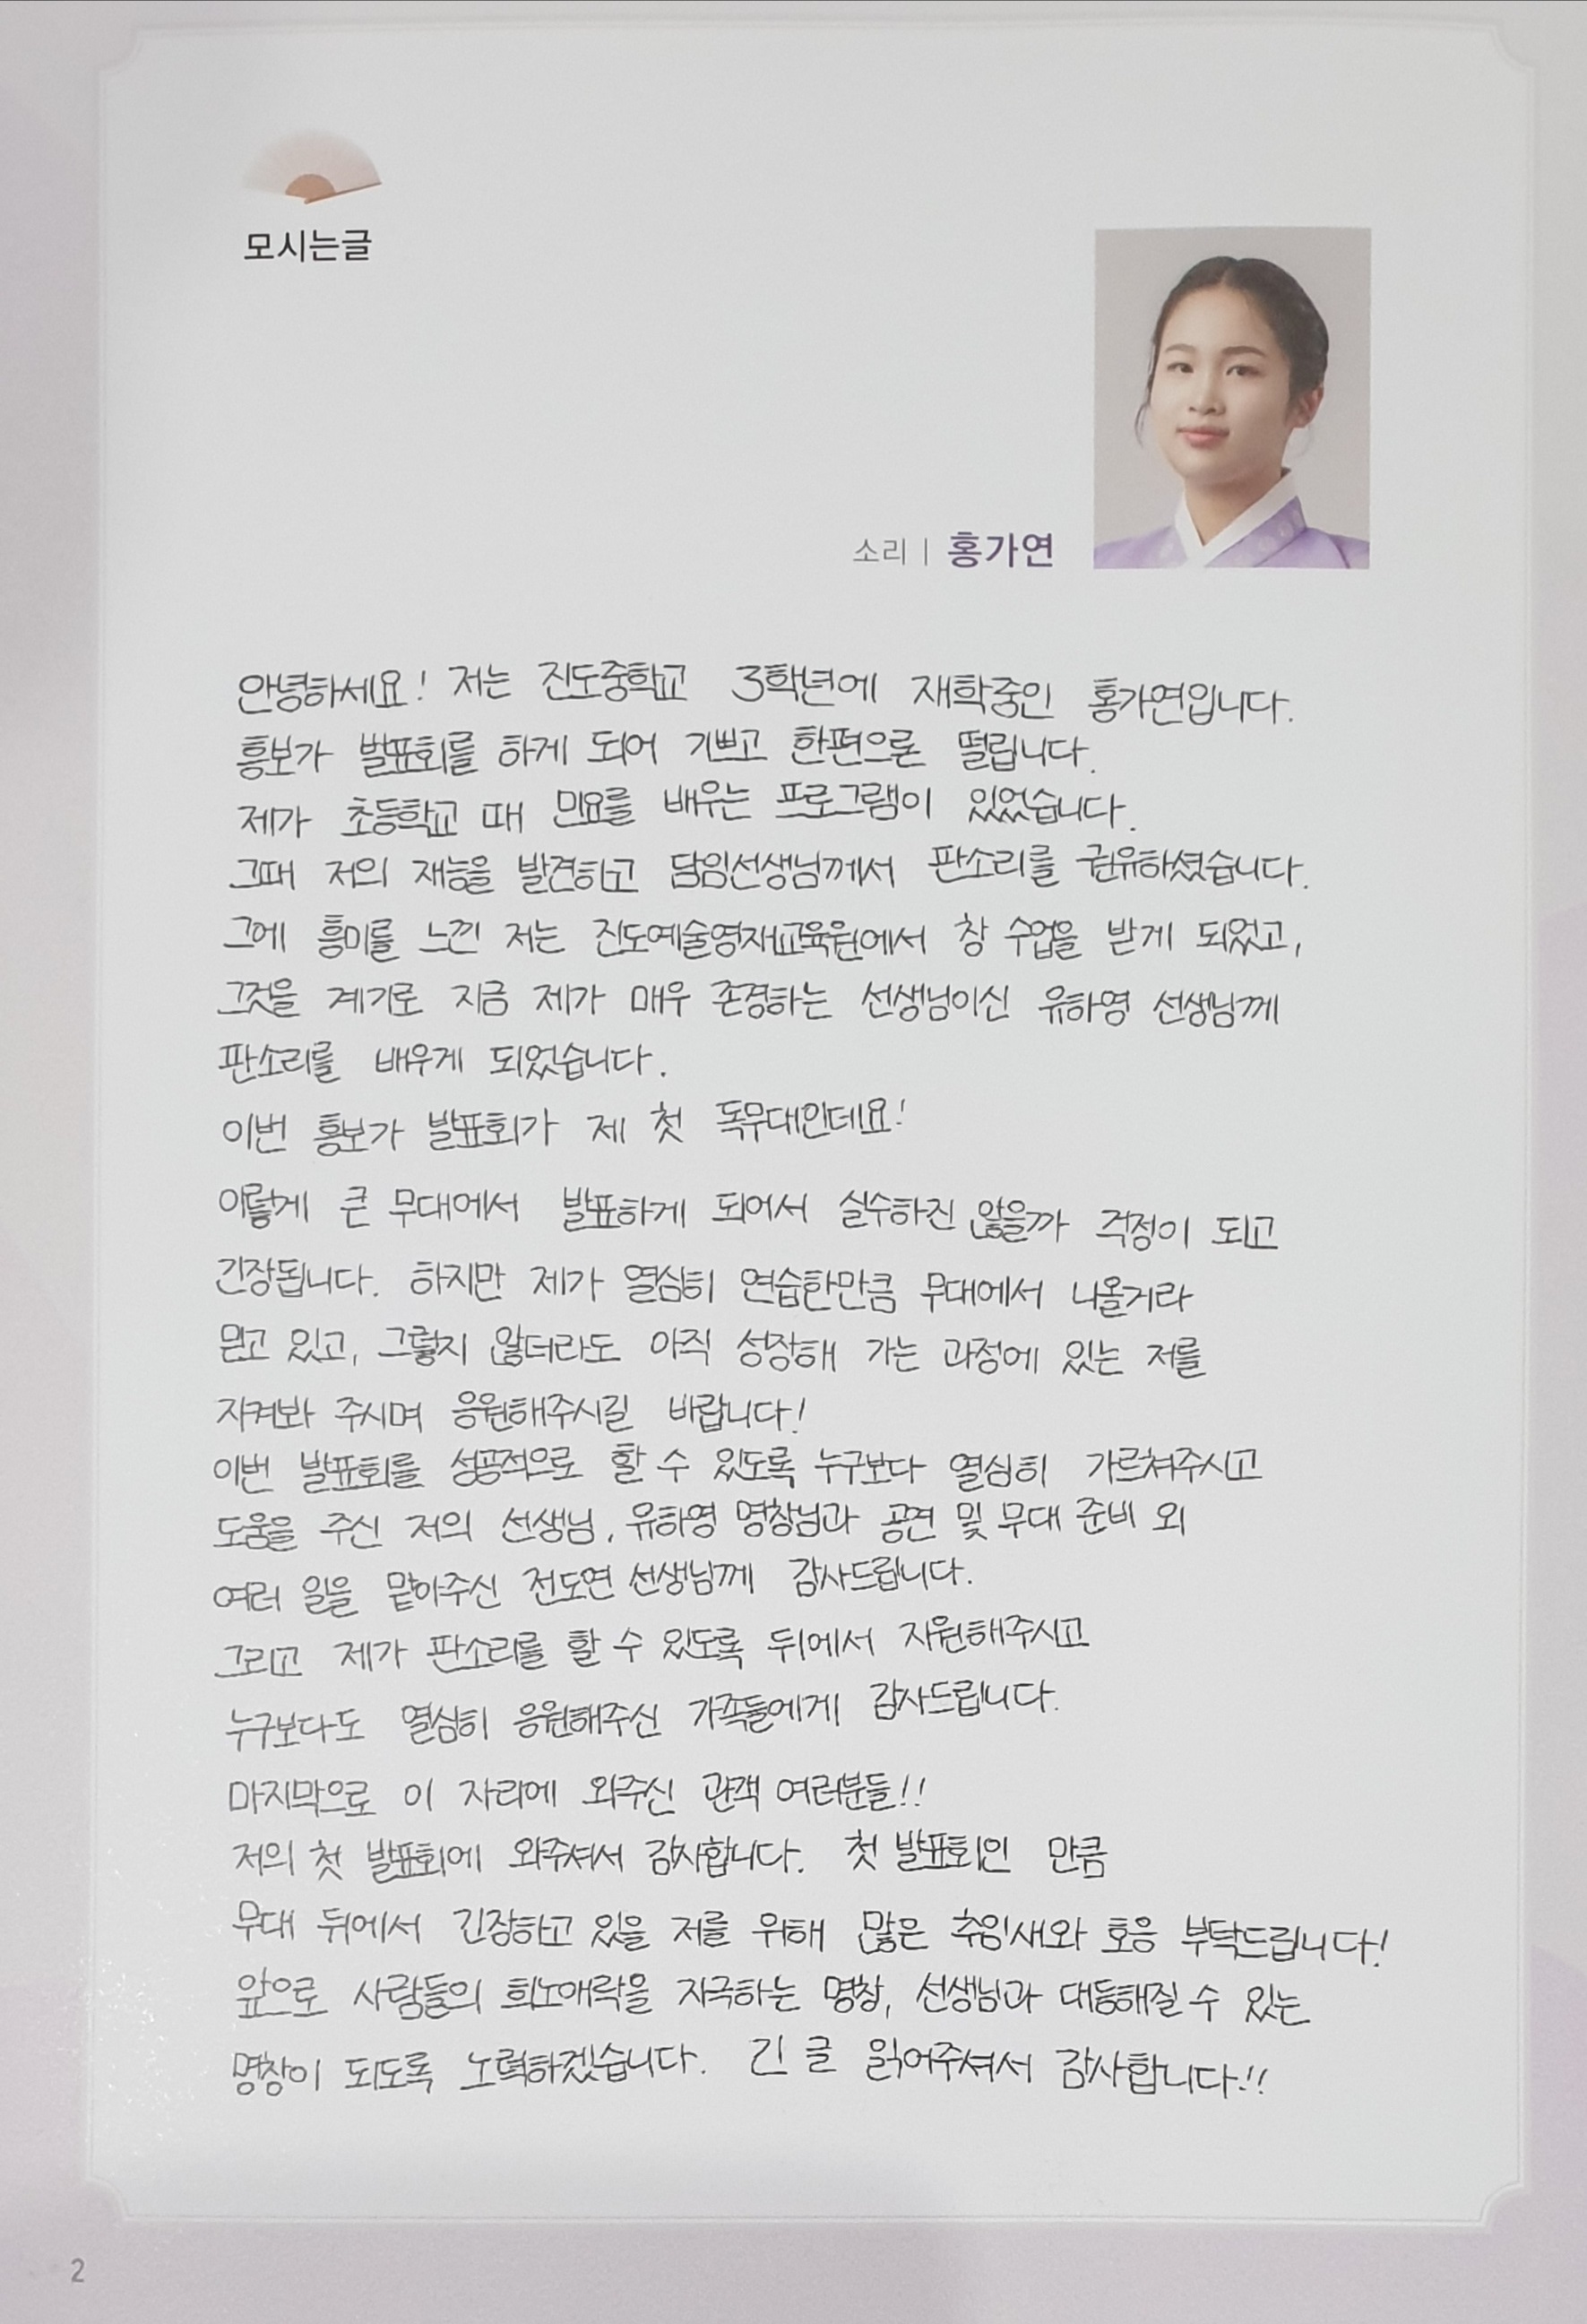 모시는글
소리 | 홍가연
안녕하세요! 저는 진도중학교 3학년에 재학중인 홍가연입니다.
흥보가 발표회를 하게 되어 기쁘고 한편으론 떨립니다.
제가 초등학교 때 민요를 배우는 프로그램이 있었습니다.
그때 저의 재능을 발견하고 담임선생님께서 판소리를 권유하셨습니다.
그에 흥미를 느낀 저는 진도예술영재교육원에서 창 수업을 받게 되었고,
그것을 계기로 지금 제가 매우 존경하는 선생님이신 유하영 선생님께
판소리를 배우게 되었습니다.
이번 흥보가 발표회가 제 첫 독무대인데요!
이렇게 큰 무대에서 발표하게 되어서 실수하진 않을까 걱정이 되고
긴장됩니다. 하지만 제가 열심히 연습한만큼 무대에서 나올거라
믿고 있고, 그렇지 않더라도 아직 성장해 가는 과정에 있는 저를
지켜봐 주시며 응원해주시길 바랍니다!
이번 발표회를 성공적으로 할 수 있도록 누구보다 열심히 가르쳐주시고
도움을 주신 저의 선생님, 유하영 명창님과 공연 및 무대 준비 외
여러 일을 맡아주신 전도연 선생님께 감사드립니다.
그리고 제가 판소리를 할 수 있도록 뒤에서 지원해주시고
누구보다도 열심히 응원해주신 가족들에게 감사드립니다.
마지막으로 이 자리에 와주신 관객 여러분들!!
저의 첫 발표회에 와주셔서 감사합니다. 첫 발표회인 만큼
무대 뒤에서 긴장하고 있을 저를 위해 많은 추임새와 호응 부탁드립니다!
앞으로 사람들의 희노애락을 자극하는 명창, 선생님과 대등해질 수 있는
명창이 되도록 노력하겠습니다. 긴 글 읽어주셔서 감사합니다!!
2